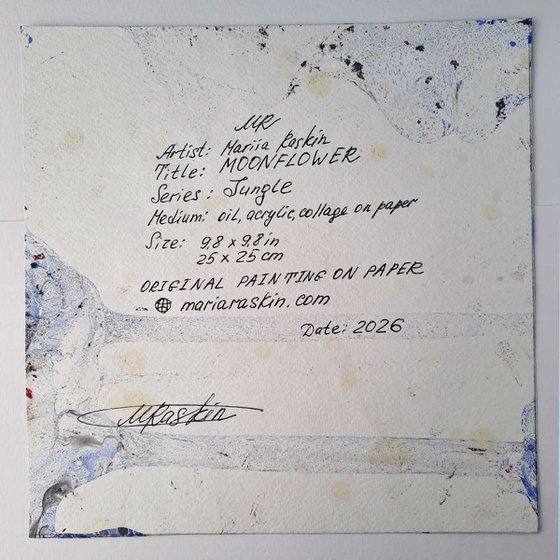 MR
Artist: Mariia Raskin
Title: MOONFLOWER
Series: Jungle
Medium: oil, acrylic, collage on paper
Size: 9.8 x 9.8 in
25 x 25 cm
ORIGINAL PAINTING ON PAPER
mariaraskin.com
Date: 2026
MRaskin